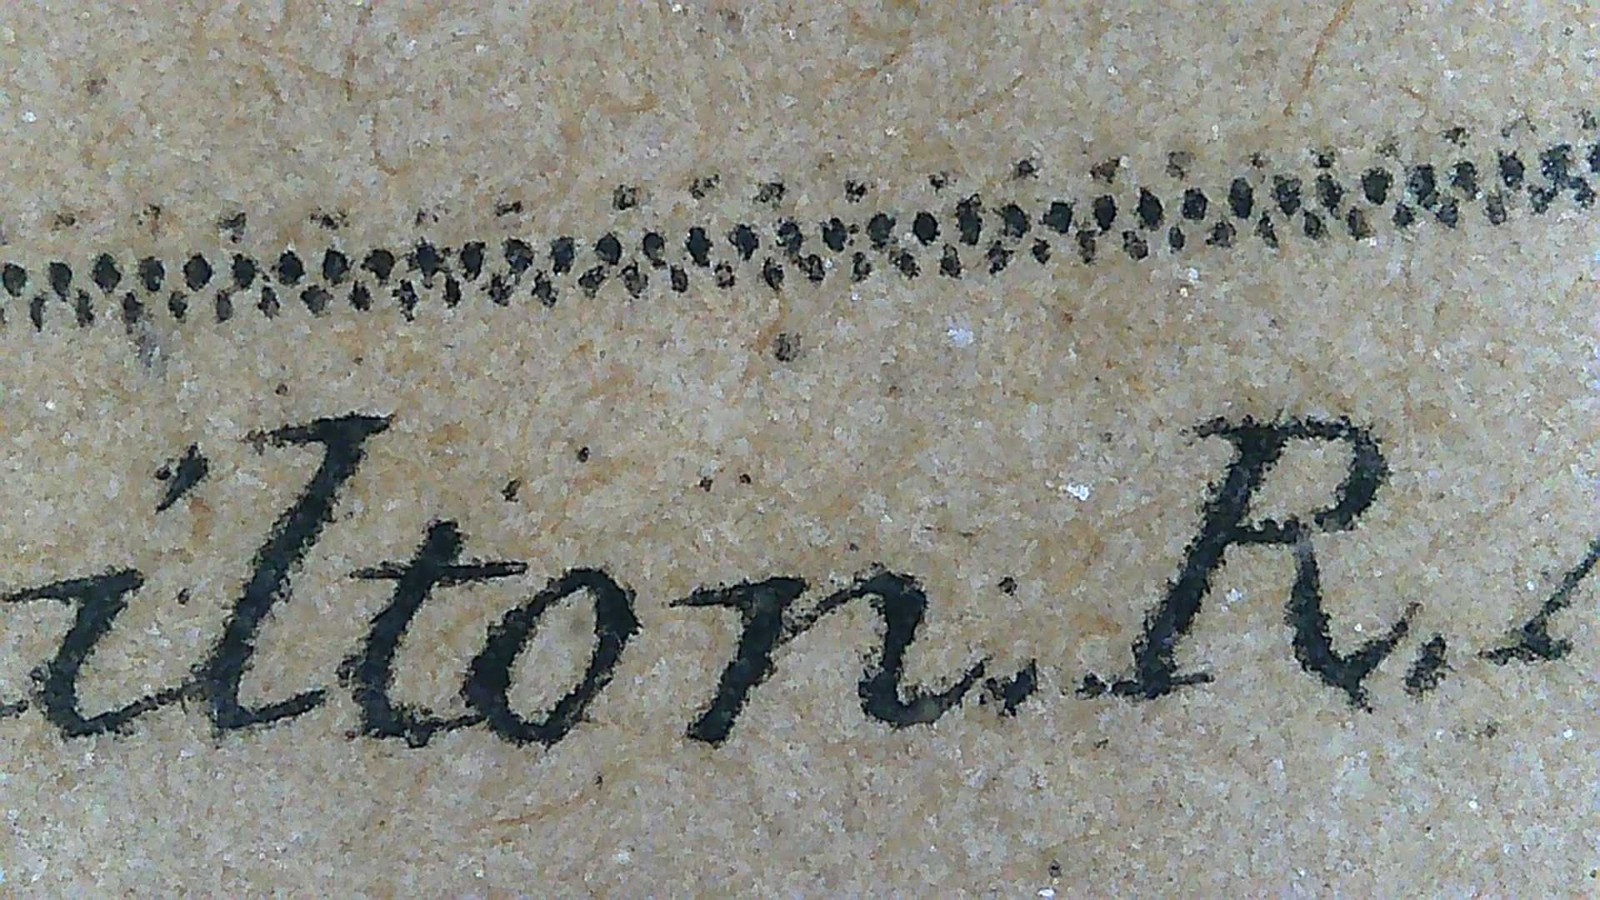 ilton. R.